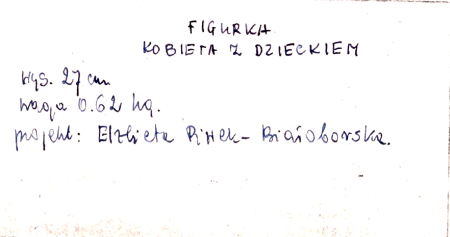 FIGURKA
KOBIETA Z DZIECKIEM
wys. 27 cm
waga 0.62 kg.
projekt: Elżbieta